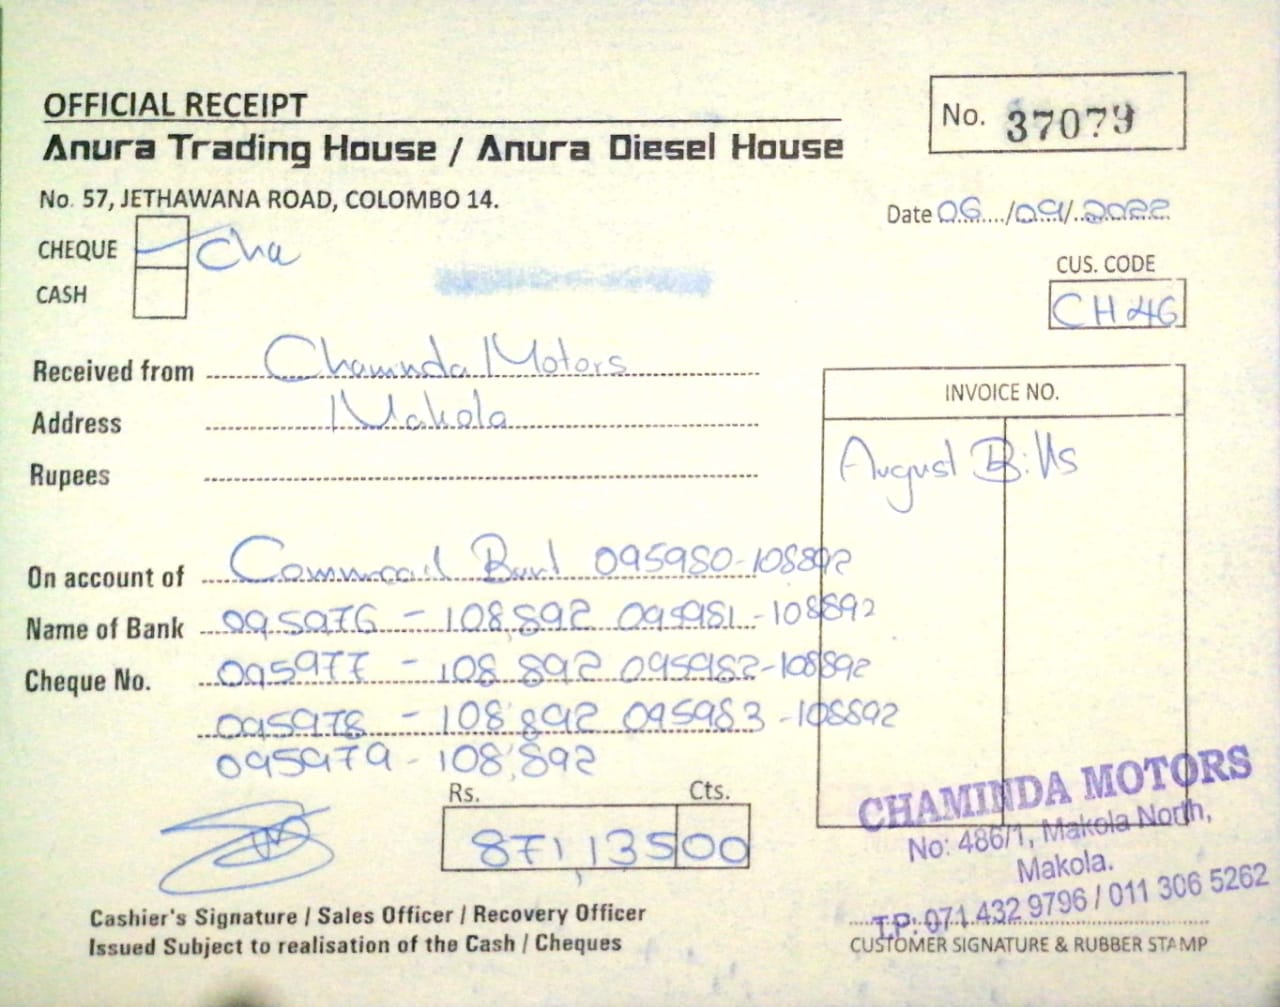 OFFICIAL RECEIPT
No. 37079
Anura Trading House / Anura Diesel House
No. 57, JETHAWANA ROAD, COLOMBO 14.
Date 06/09/2022
CHEQUE Cha
CASH
CUS. CODE
CH 46
Received from Chaminda Motors
Address Makola
Rupees
INVOICE NO.
August Bills
On account of Commercail Bank 095980-108892
Name of Bank 095976 - 108,892 095981-108892
Cheque No. 095977 - 108 892 095982-108892
095978 - 108,892 095983-108892
095979 - 108,892
Rs. Cts.
871,135 00
CHAMINDA MOTORS
No: 486/1, Makola North,
Makola.
T.P: 071 432 9796 / 011 306 5262
Cashier's Signature / Sales Officer / Recovery Officer
Issued Subject to realisation of the Cash / Cheques
CUSTOMER SIGNATURE & RUBBER STAMP